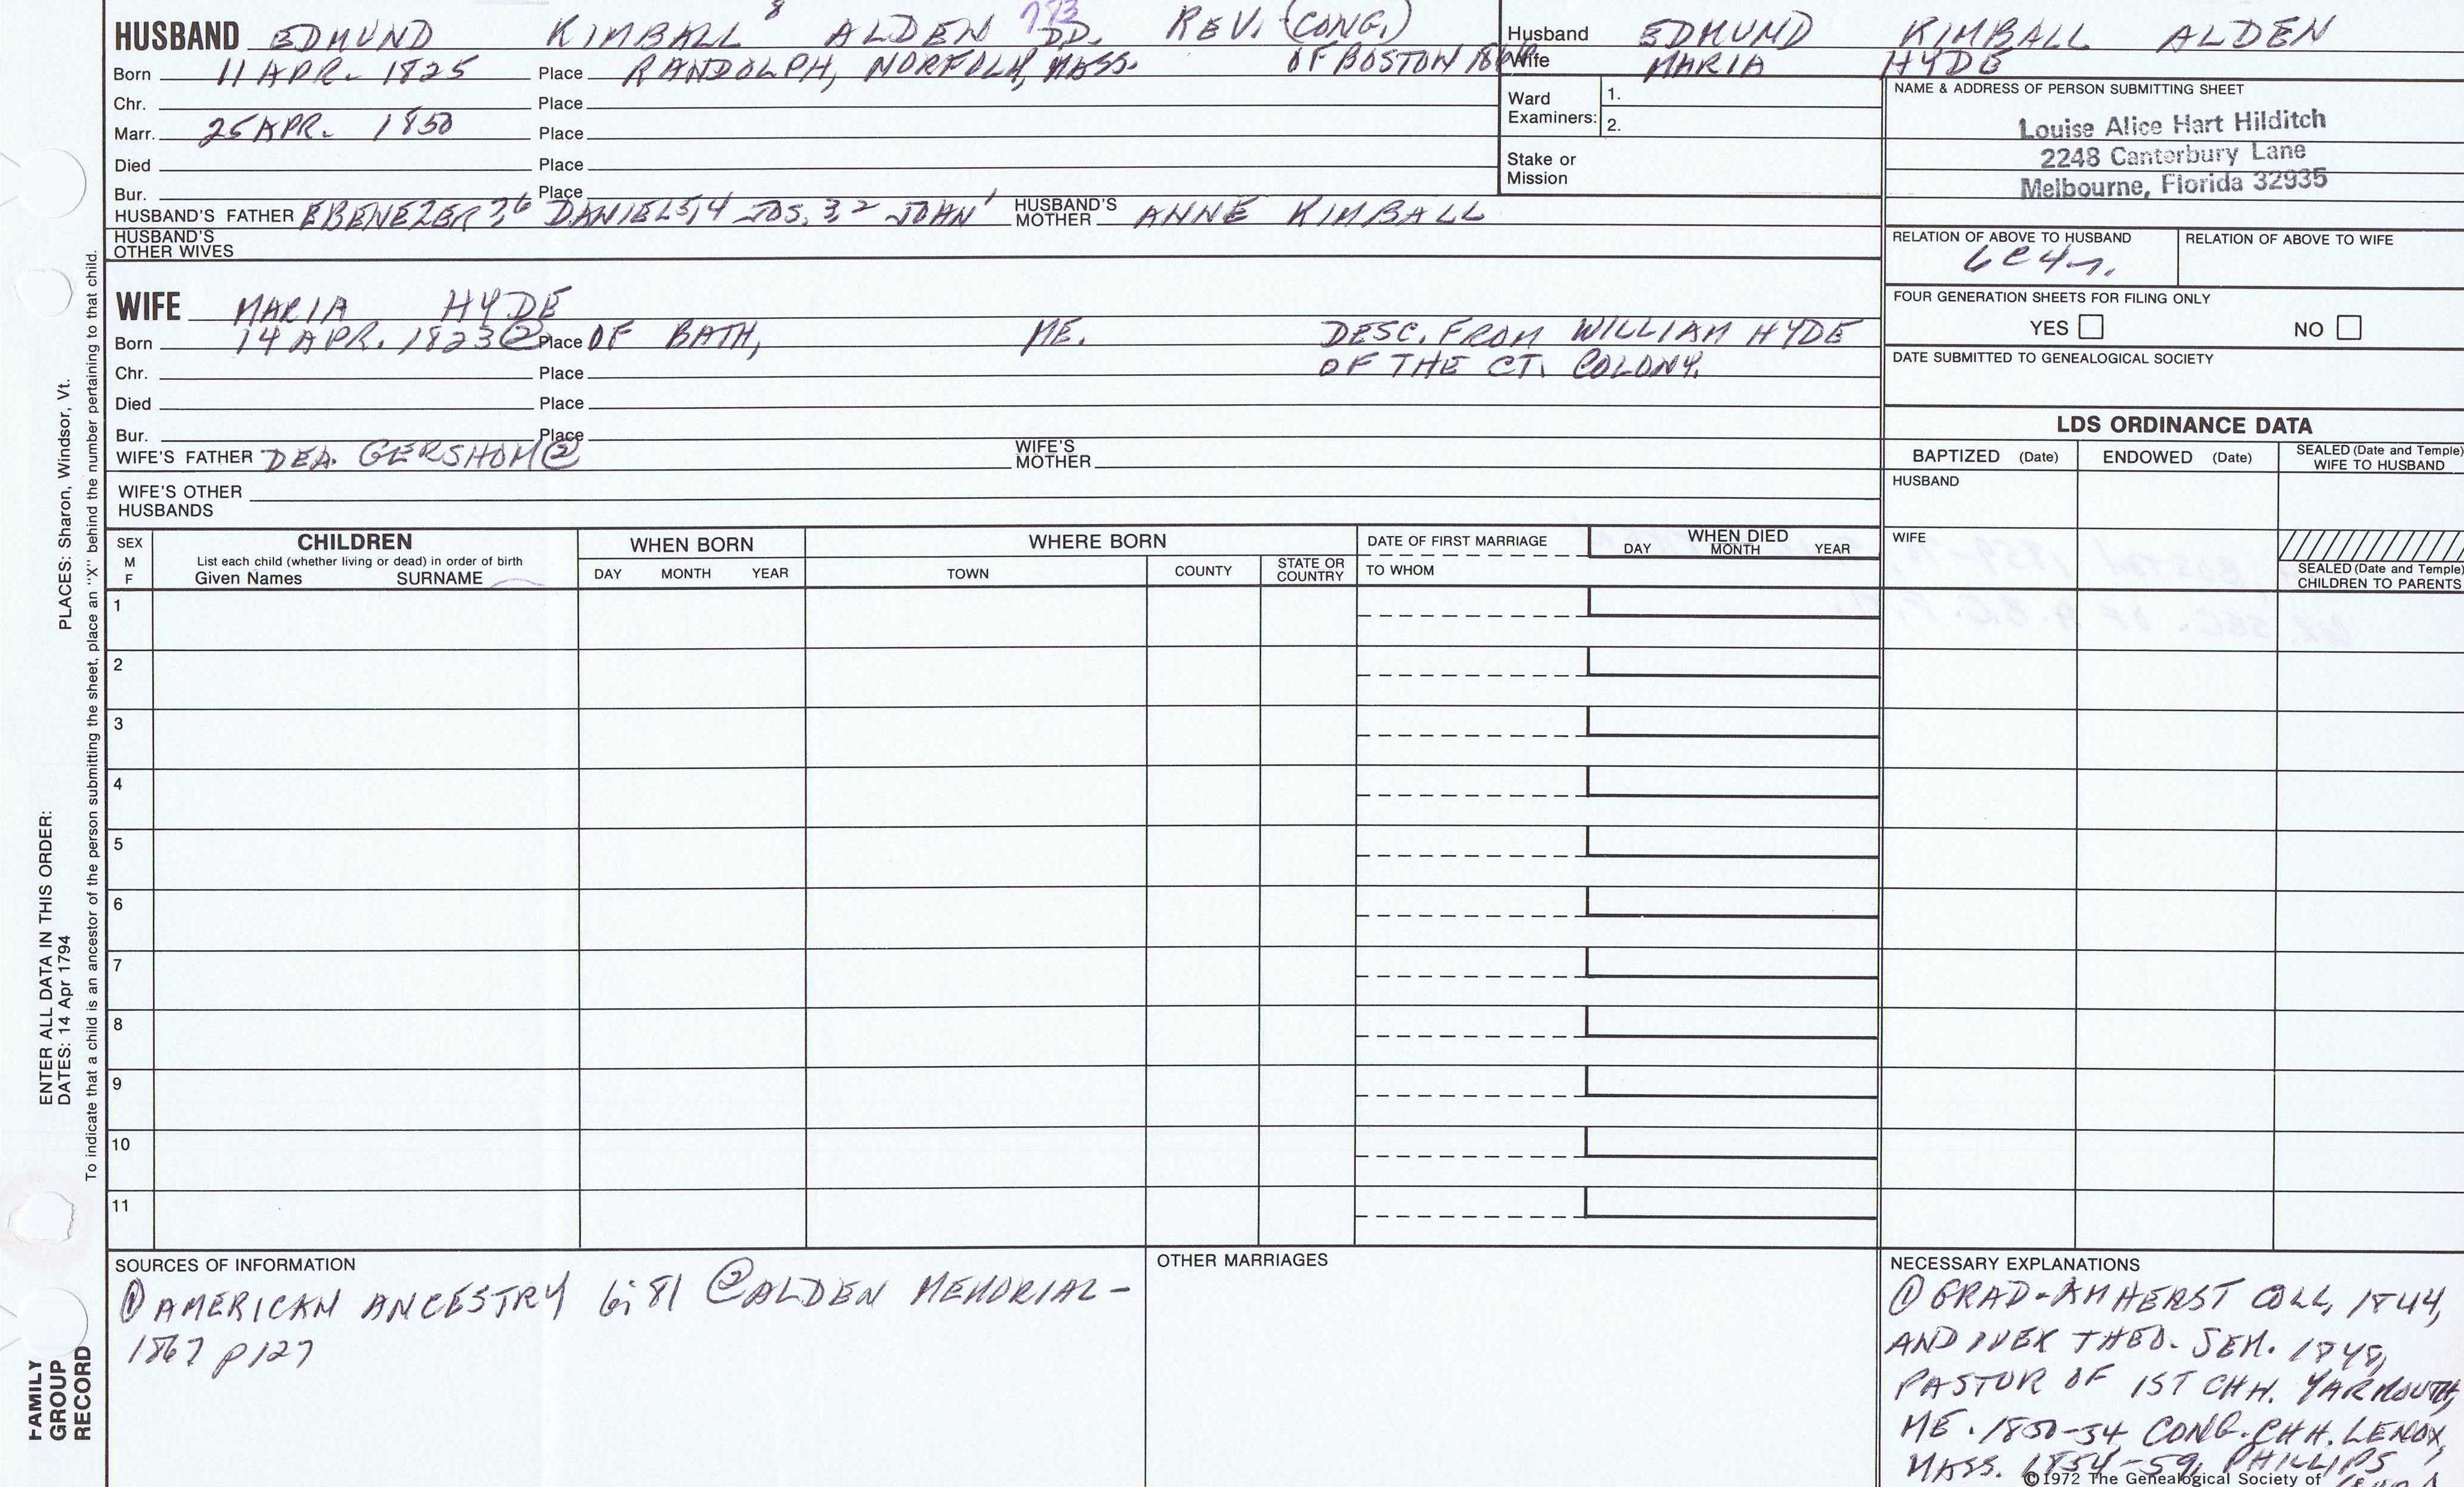 HUSBAND EDMUND KIMBALL 8 ALDEN 793 DD. REV. (CONG.)
Born 11 APR. 1825 Place RANDOLPH, NORFOLK, MASS. OF BOSTON
Chr. Place
Marr. 25 APR. 1850 Place
Died Place
Bur. Place
HUSBAND'S FATHER EBENEZER 7,6 DANIEL 5,4 JOS. 3,2 JOHN 1 HUSBAND'S MOTHER ANNE KIMBALL
HUSBAND'S
OTHER WIVES
WIFE MARIA HYDE
Born 14 APR. 1823 ② Place OF BATH, ME. DESC. FROM WILLIAM HYDE
Chr. Place OF THE CT. COLONY.
Died Place
Bur. Place
WIFE'S FATHER DEA. GERSHOM ② WIFE'S MOTHER
WIFE'S OTHER
HUSBANDS
Husband EDMUND KIMBALL ALDEN
Wife MARIA HYDE
Ward
Examiners:
1.
2.
Stake or
Mission
NAME & ADDRESS OF PERSON SUBMITTING SHEET
Louise Alice Hart Hilditch
2248 Canterbury Lane
Melbourne, Florida 32935
RELATION OF ABOVE TO HUSBAND RELATION OF ABOVE TO WIFE
FOUR GENERATION SHEETS FOR FILING ONLY
YES NO
DATE SUBMITTED TO GENEALOGICAL SOCIETY
LDS ORDINANCE DATA
BAPTIZED (Date) ENDOWED (Date) SEALED (Date and Temple)
WIFE TO HUSBAND
HUSBAND
WIFE
SEALED (Date and Temple)
CHILDREN TO PARENTS
SEX
M
F
CHILDREN
List each child (whether living or dead) in order of birth
Given Names SURNAME
WHEN BORN
DAY MONTH YEAR
WHERE BORN
TOWN COUNTY STATE OR
COUNTRY
DATE OF FIRST MARRIAGE
TO WHOM
WHEN DIED
DAY MONTH YEAR
1
2
3
4
5
6
7
8
9
10
11
SOURCES OF INFORMATION
① AMERICAN ANCESTRY 6:81 ② ALDEN MEMORIAL -
1867 p 127
OTHER MARRIAGES
NECESSARY EXPLANATIONS
① GRAD - AMHERST COLL, 1844,
AND THEO. SEM. 1848,
PASTOR OF 1ST CHH. YARMOUTH,
ME. 1850-54, CONG. CHH. LENOX,
MASS. 1854-59, PHILLIPS
©1972 The Genealogical Society of
PLACES: Sharon, Windsor, Vt.
ENTER ALL DATA IN THIS ORDER:
DATES: 14 Apr 1794
To indicate that a child is an ancestor of the person submitting the sheet, place an "X" behind the number pertaining to that child.
FAMILY
GROUP
RECORD